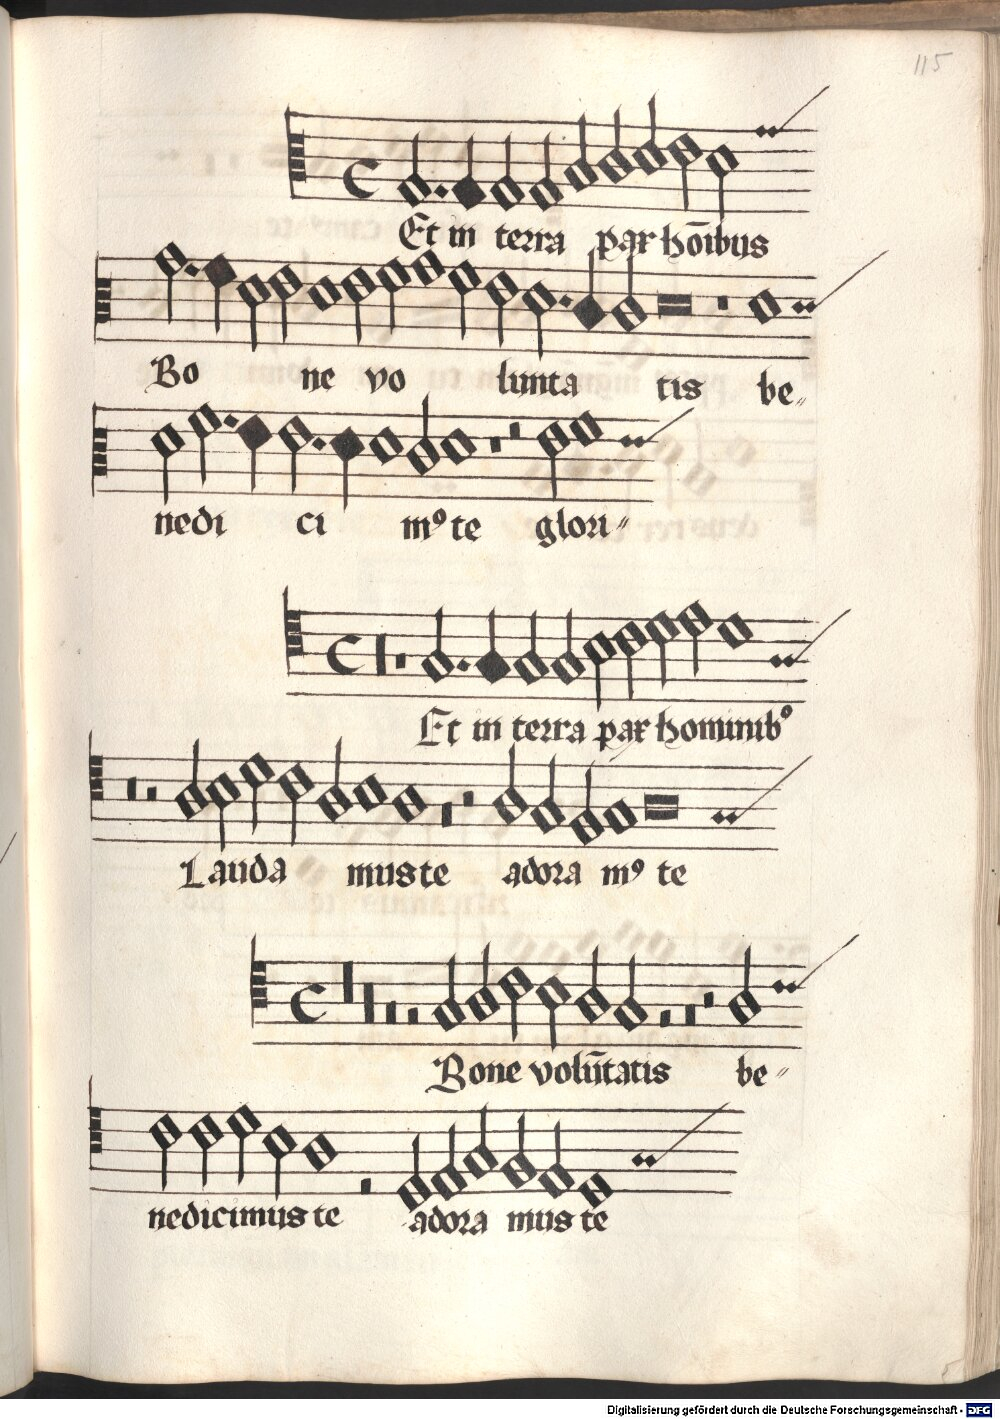 115
Et in terra pax hōibus
Bo ne vo lunta tis be„
nedi ci mꝰ te glori„
Et in terra pax hominibꝰ
Lauda mus te adora mꝰ te
Bone volūtatis be„
nedicimus te adora mus te
Digitalisierung gefördert durch die Deutsche Forschungsgemeinschaft - DFG